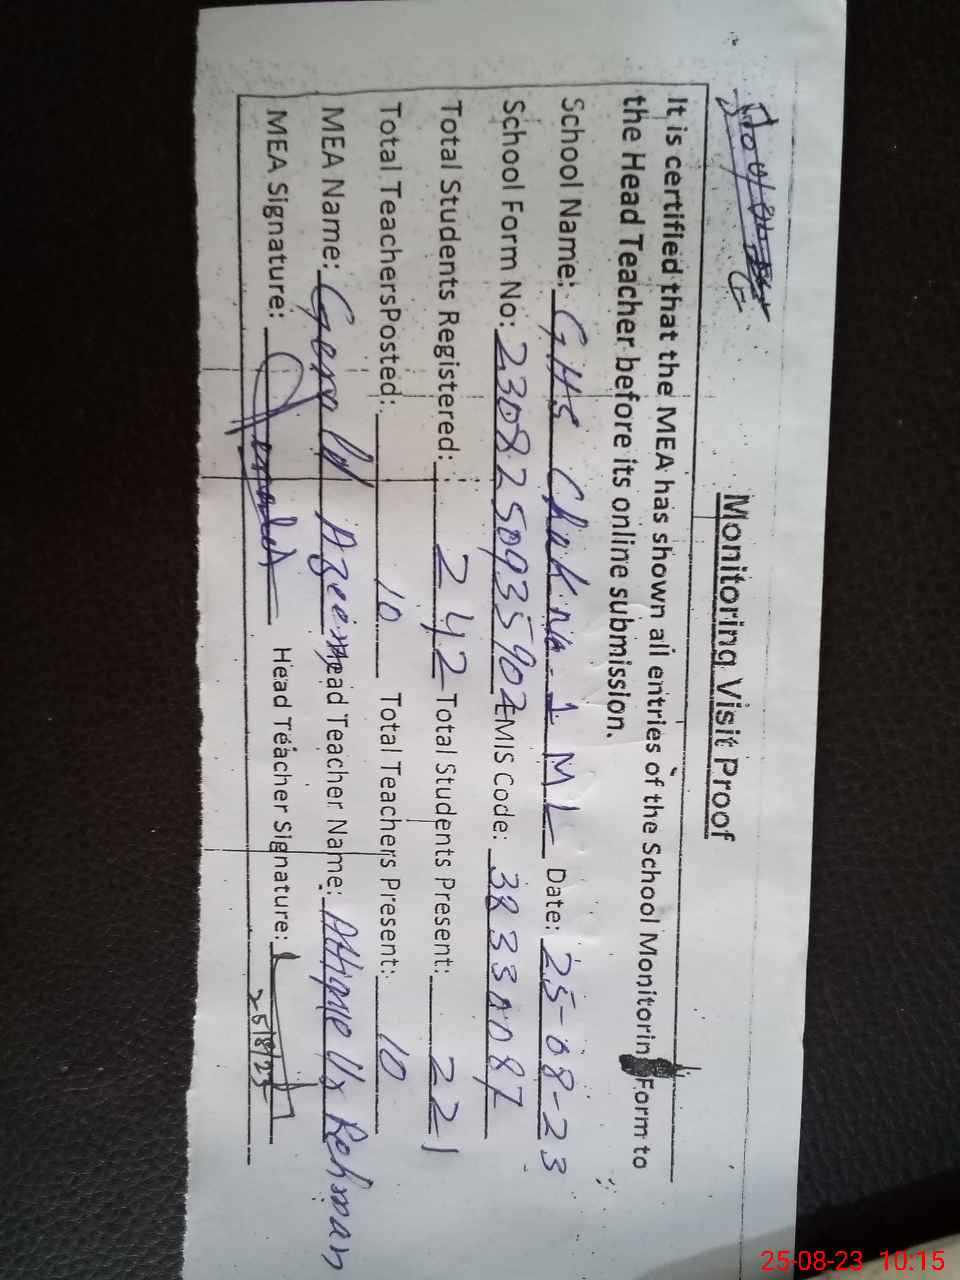 Monitoring Visit Proof
It is certified that the MEA has shown all entries of the School Monitorin Form to
the Head Teacher before its online submission.
School Name: GHS Chak No. 1 ML Date: 25-08-23
School Form No: 2308250935902 EMIS Code: 38330087
Total Students Registered: 242 Total Students Present: 221
Total TeachersPosted: 10 Total Teachers Present: 10
MEA Name: Gerald Azeem Head Teacher Name: Attique Ur Rehman
MEA Signature: Head Teacher Signature:
25/8/23
25-08-23 10:15